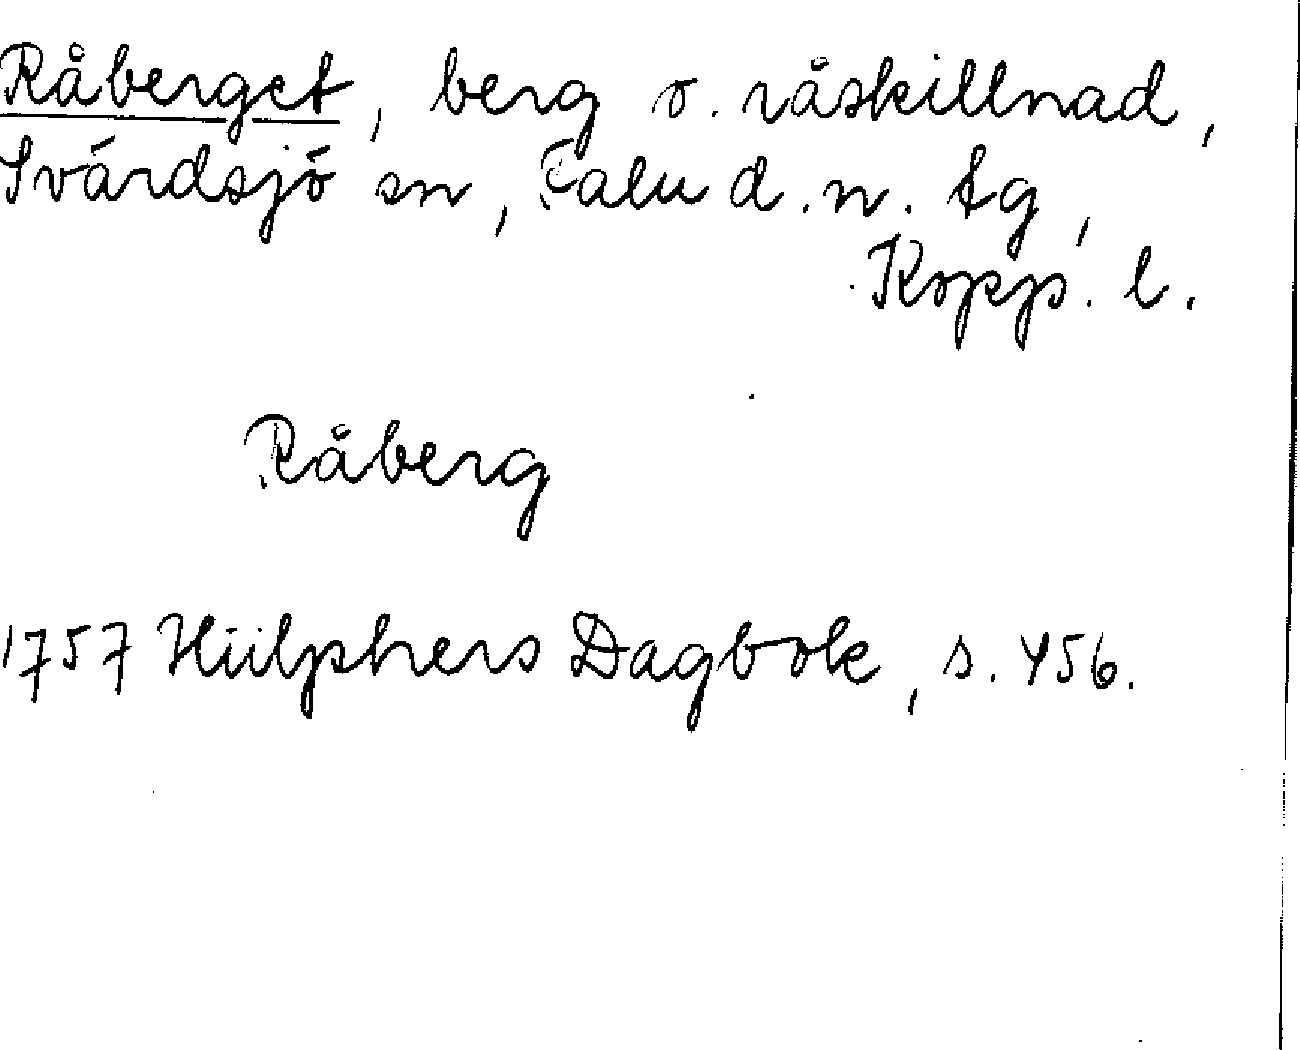 Råberget, berg o. råskillnad,
Svärdsjö sn, Falu d. n. tg,
Kopp. l.
Råberg
1757 Hülphers Dagbok, s. 456.